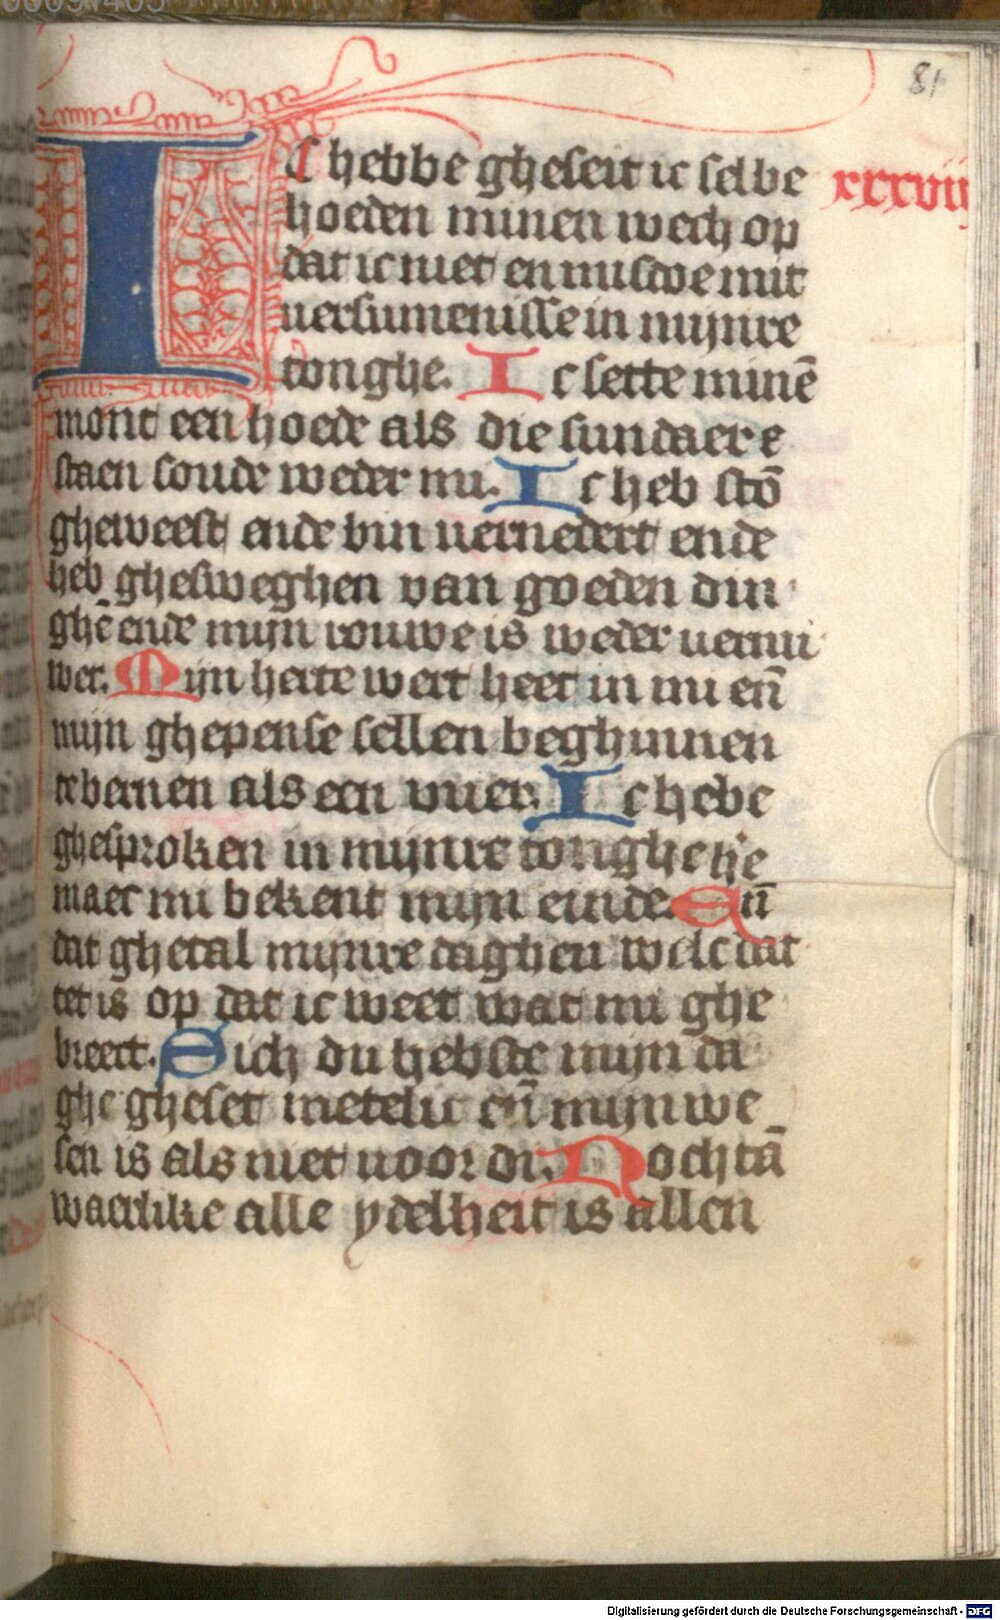 81
IC hebbe gheseit ic selbe
xxxviij
hoeden minen wech op
dat ic niet en misdoe mit
uersumenisse in mijnre
tonghe. Ic sette minē
mont een hoede als die sundaere
staen soude weder mi. Ic heb stō
gheweest ende bin uernedert ende
heb ghesweghen van goeden din
ghē ende mijn rouwe is weder uernui
wet. Mijn herte wert heet in mi eñ
mijn ghepense sellen beghinnen
te bernen als een vuer. Ic hebe
ghesproken in mijnre tonghe he
maer mi bekent mijn einde. Eñ
dat ghetal mijnre daghen welc dat
tet is op dat ic weet wat mi ghe
breect. Sich du hebste mijn da
ghe gheset metelic eñ mijn we
sen is als niet uoor di. Nochtā
waerlike alle ydelheit is allen
Digitalisierung gefördert durch die Deutsche Forschungsgemeinschaft - DFG